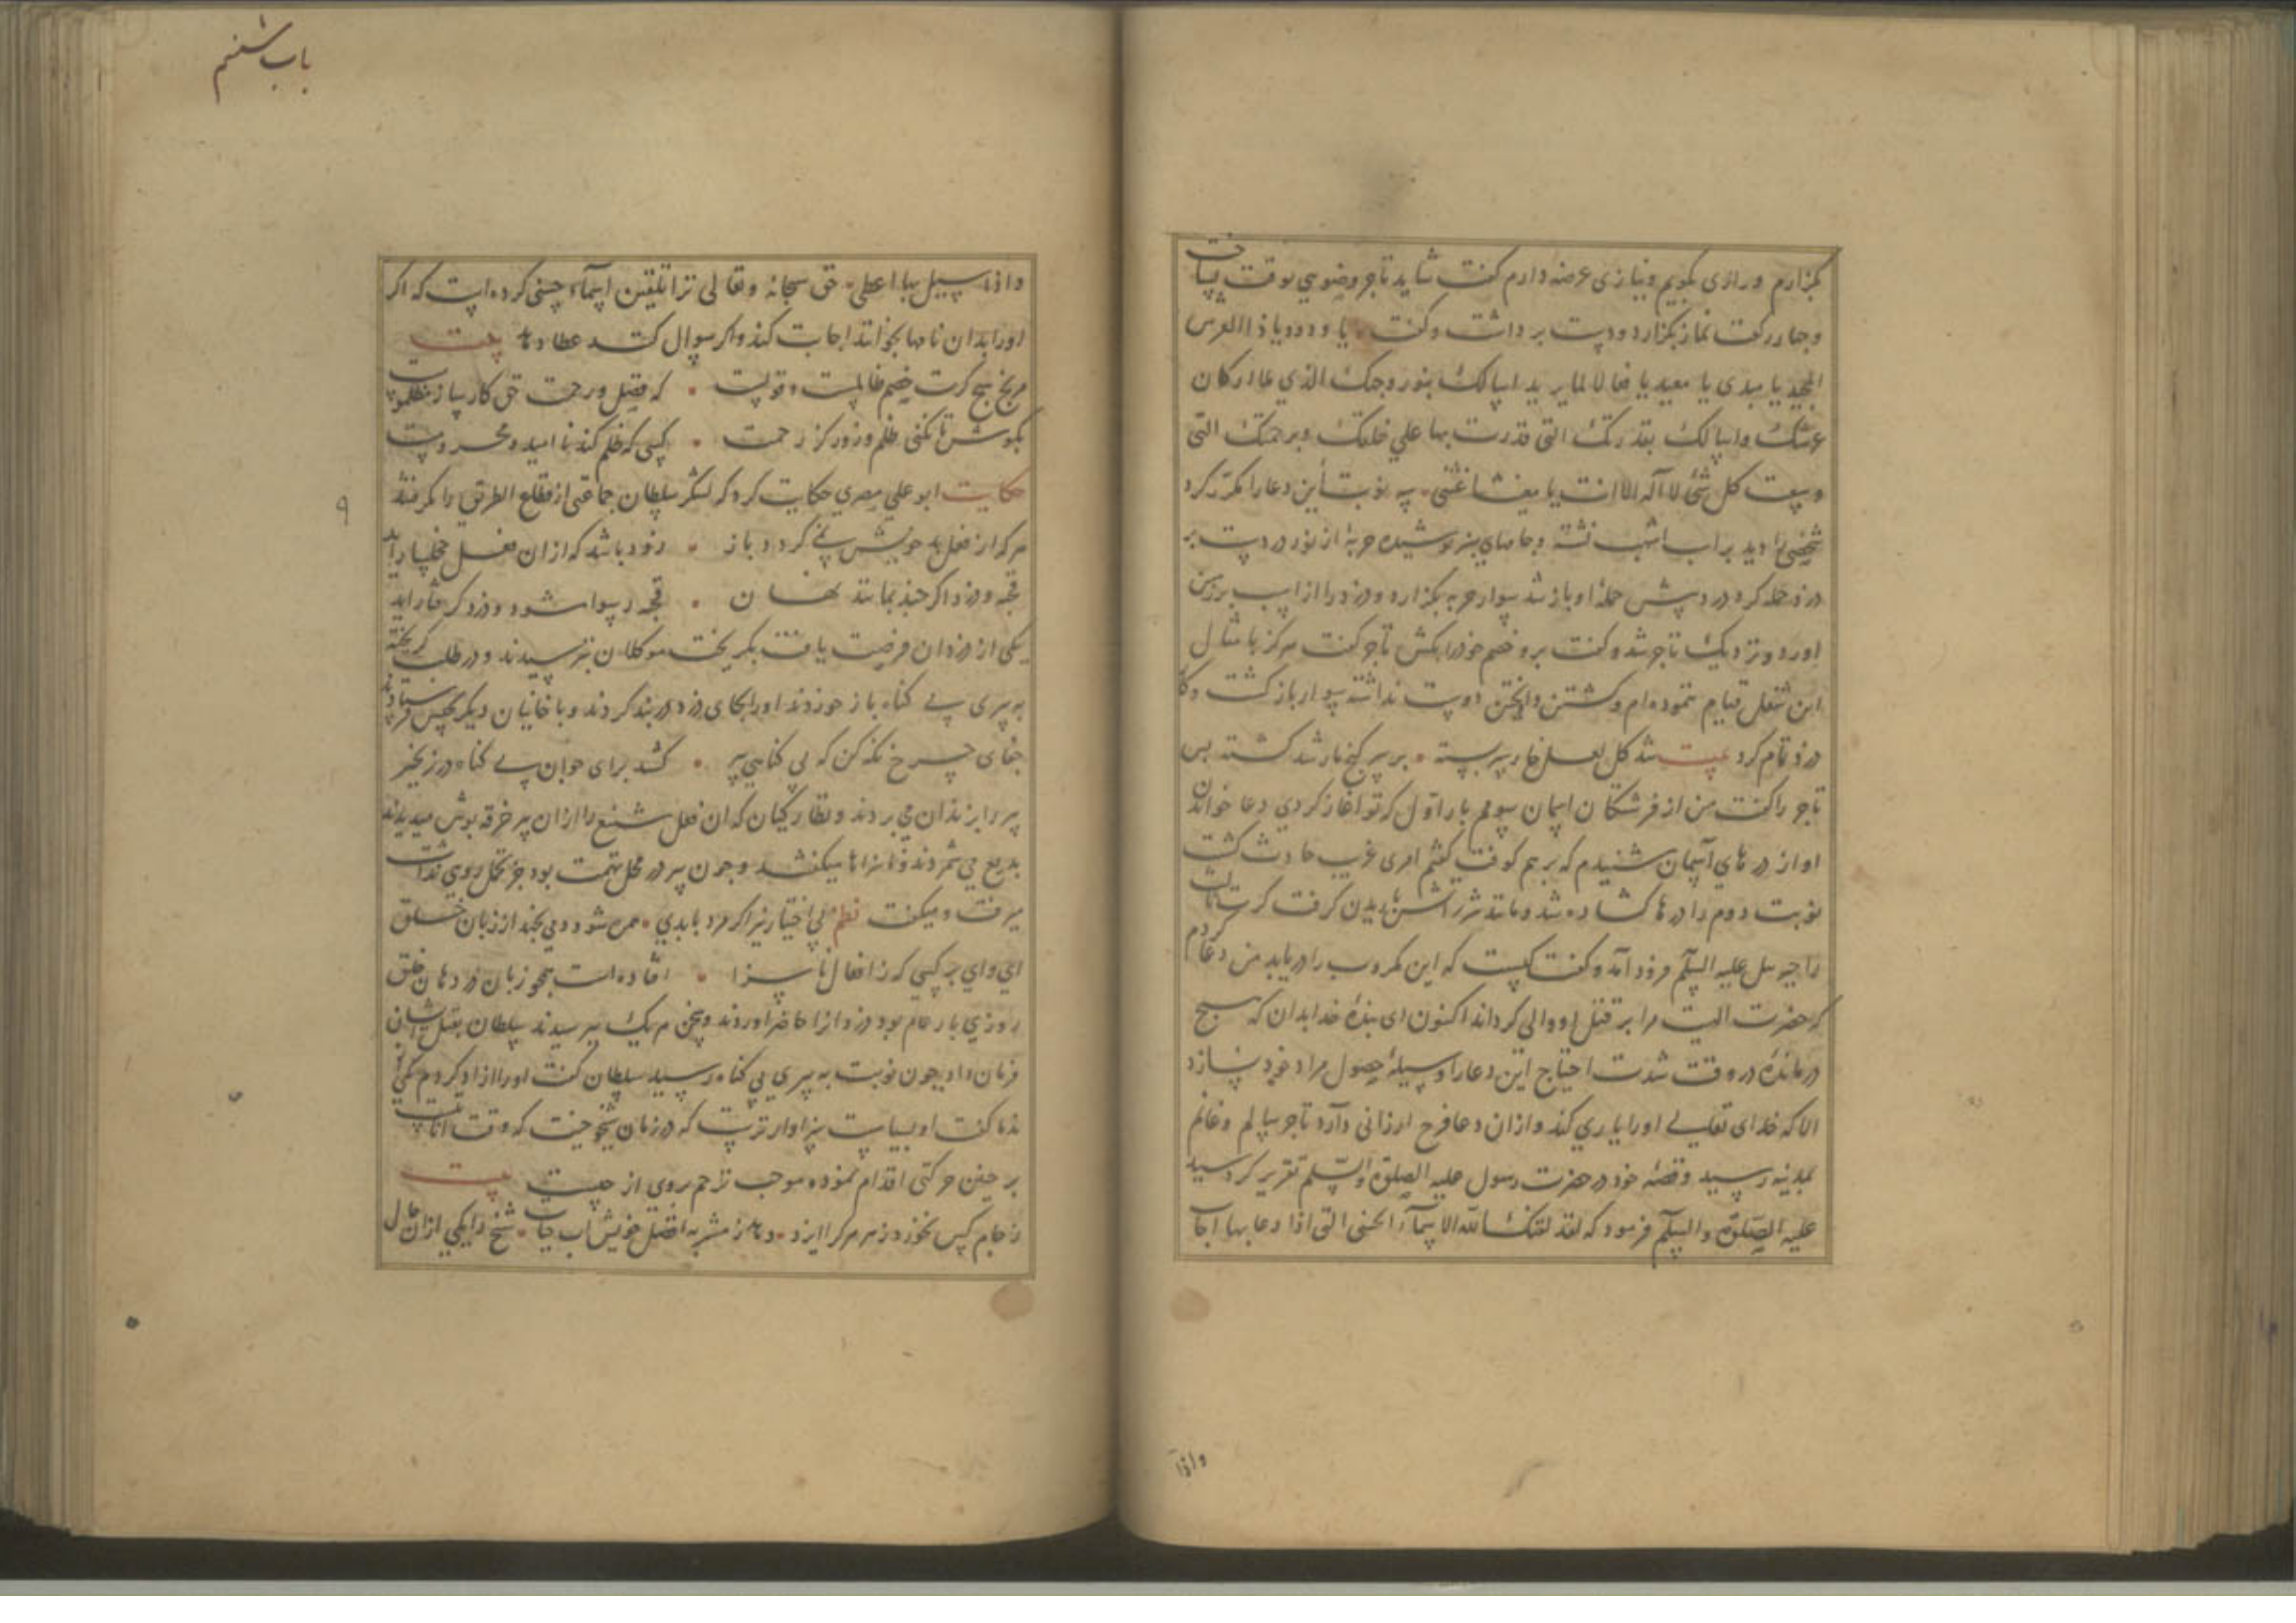 بکزارم و رازی بکویم و نیازی عرضه دارم کفت شاید تاجر وضویی بوقت بساخت
و چهار رکعت نماز بکزارد و دست برداشت و کفت یا ودود یا ذا العرش
المجید یا مبدی یا معید یا فعالا لما یرید اسالک بنور وجهک الذی ملا ارکان
عرشک و اسالک بقدرتک التی قدرت بها علی خلقک و برحمتک التی
وسعت کل شیٔ لا اله الا انت یا مغیث اغثنی سه نوبت این دعا را مکرر کرد
شخصی را دید بر اسب اشهب نشسته و جامهای سبز پوشیده حربهٔ از نور در دست بر
دزد حمله کرد دزد پیش حملهٔ او باز شد سوار حربه بکزارد و دزد را از اسب بر زمین
اورد و نزدیک تاجر شد و کفت برو خصم خود را بکش تاجر کفت هرکز بامثال
این شغل قیام ننموده‌ام و کشتن دوست نداشته سوار باز کشت و کار
دزد تمام کرد بیت شد کل لعل خار سر بسته بر سر کنج مار شد کشته پس
تاجر را کفت من از فرشتکان اسمان سوم بار اول که تو اغاز کردی دعا خواندن
اواز درهای آسمان شنیدم که بر هم کوفت کفتم امری غریب حادث کشت
نوبت دوم را درها کشاده شد و مانند شرر آتش باریدن کرفت کرت ثالث
را جبرییل علیه السلم فرود آمد و کفت کیست که این مکروب را دریابد من دعا کردم
که حضرت الهیت مرا بر قتل او والی کرداند اکنون ای بندهٔ خدا بدان که هیچ
درماندهٔ در وقت شدت احتیاج این دعا را وسیلهٔ حصول مراد خود نسازد
الا که خدای تعالی اورا یاری کند و ازان دعا فرج ارزانی دارد تاجر سالم و غانم
بمدینه رسید و قصهٔ خود در حضرت رسول علیه الصلوة والسلم تقریر کرد سید
علیه الصلوة والسلم فرمود که لقد لقنک الله الاسمآء الحسنی التی اذا دعا بها اجاب
واذا
باب ششم
واذا سیل بها اعطی حق سبحانه و تعالی ترا تلقین اسمآء حسنی کرده است که اکر
اورا بدان نامها بخوانند اجابت کند و اکر سوال کنند عطا دهد بیت
مرنج هیچ کرت خصم ظالمست و قویست که فضل و رحمت حق کارساز مظلومست
بکوش تا نکنی ظلم و زور کز رحمت کسی که ظلم کند نا امید و محرومست
حکایت ابو علی مصری حکایت کرد که لشکر سلطان جماعتی از قطاع الطریق را بکرفتند
هرکه از فعل بد خویش نمی‌کردد باز زود باشد که ازان فعل خجلسار آید
قحبه و دزد اکر چند بمانند نهان قحبه رسوا شود و دزد کرفتار آید
یکی از دزدان فرصت یافت بکریخت موکلان بترسیدند و در طلب کریخته
به پیری بی کناه باز خوردند اورا بجای دزد دربند کردند و با خانیان دیکر بحبس فرستادند
جفای چرخ نکه کن که بی کناهی پیر کشد برای جوان بی کناه در زنجیر
پیر را بزندان می بردند و نظارکیان که ان فعل شنیع را ازان پیر خرقه پوش میدیدند
بدیع می شمردند و ناسزاها میکفتند و چون پیر در محل تهمت بود جز تحمل روی نداشت
میرفت و میکفت نظم
ای وای بر کسی که ز افعال ناسزا افتاده است همچو زبان در دهان خلق
روزی بار عام بود دزدانرا حاضر اوردند و سخن هریک بپرسیدند سلطان بقتل ایشان
فرمان داد چون نوبت به پیری بی کناه رسید سلطان کفت اورا ازاد کردم یکی از
ندما کفت او بسیاست سزاوارترست که در زمان شیخوخیت که وقت انابتست
بر چنین حرکتی اقدام نموده موجب ترحم بروی از چیست بیت
شیخ را یکی ازان عمال